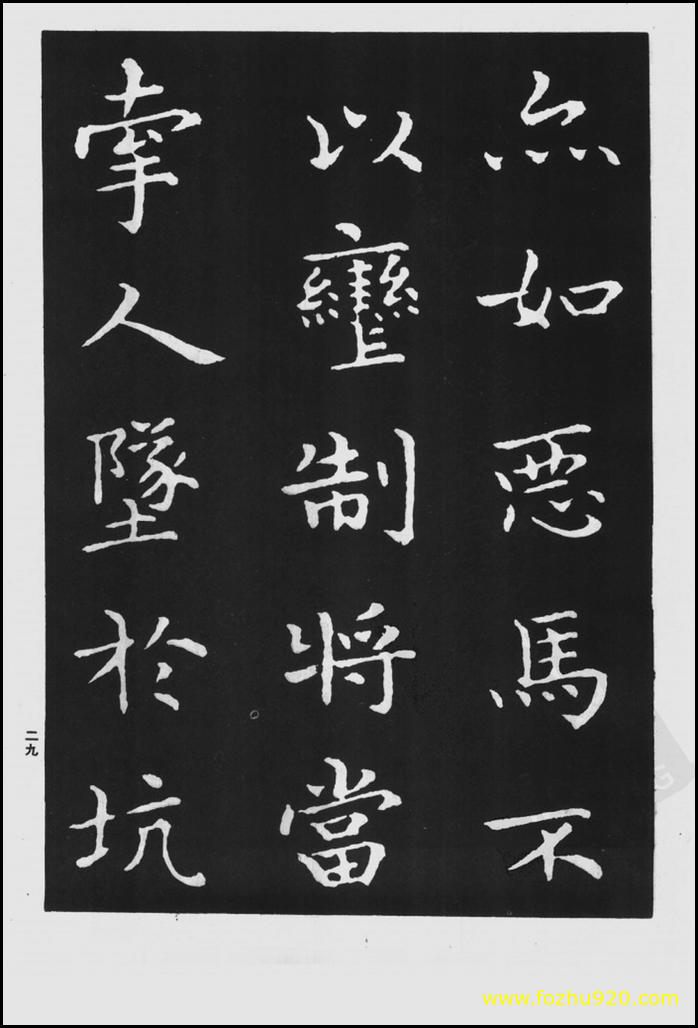 亦如惡馬不
以轡制將當
牽人墜於坑
二九
www.fozhu920.com